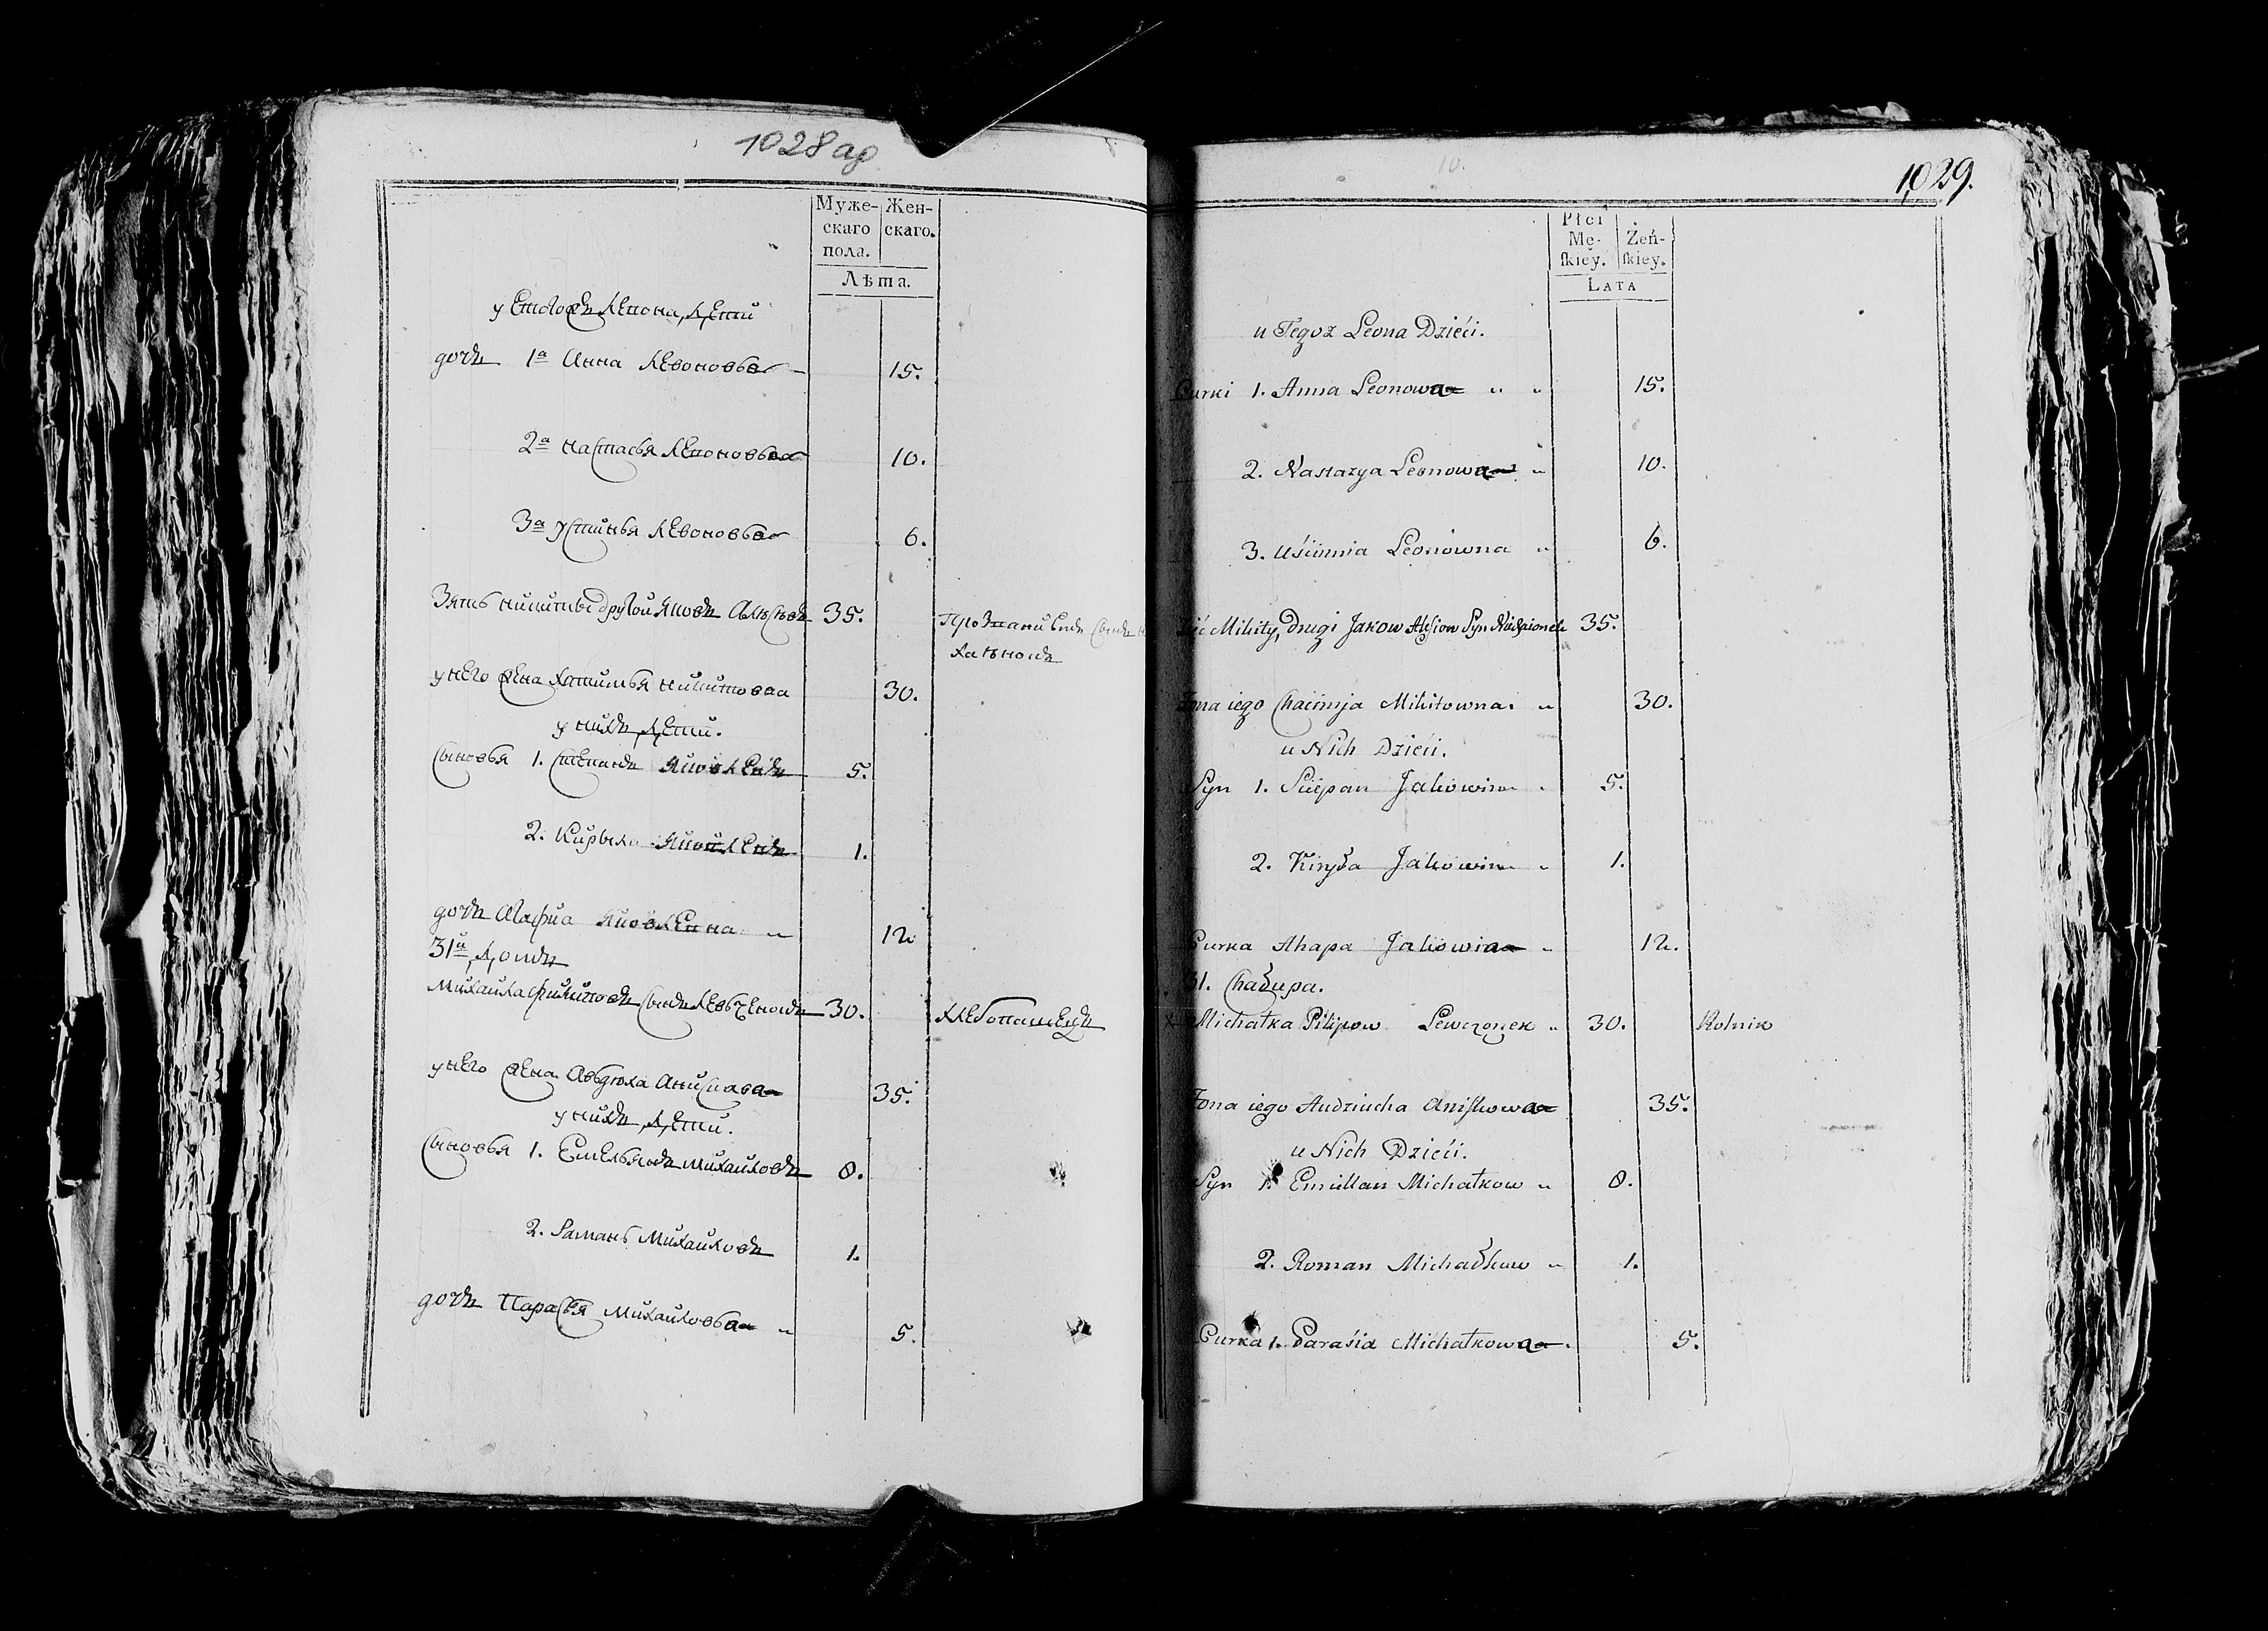 1028 ар
Муже-
скаго
пола.
Жен-
скаго.
Лѣта.
у Етогожъ Левона, Дети
дочъ 1а Анна Левоновъна 15.
2а Настасья Левоновъна 10.
3а Устинья Левоновъна 6.
Зять Никиты другой Яковъ 35.
у него жена Хатимья Никитовна 30.
у нихъ Дети.
Сыновья 1. Степанъ Яковлевъ 5.
2. Кирыла Яковлевъ 1.
дочъ Агафиа Яковлевна 12
31й Домъ
Михалка Филиповъ Сынъ Левчонокъ 30. хлебопашецъ
у него жена Авдюха 35.
у нихъ Дети.
Сыновья 1. Емельянъ Михалковъ 8.
2. Раманъ Михалковъ 1.
дочъ Парасья Михалковъна 5.
1029.
Płci
Mę-
skiey.
Żeń-
skiey.
LATA
u Tegoż Leona Dzieći.
Curki 1. Anna Leonowna 15.
2. Nastazya Leonowna 10.
3. Uścinnia Leonowna 6.
Mikity, drugi Jakow Alesiow Syn 35.
Żona iego Chaćimja Mikitowna 30.
u Nich Dzieći.
Syn 1. Sciepan Jakowin 5.
2. Kiryła Jakowin 1.
Curka Ahapa Jakowina 12.
31. Chałupa.
x Michałka Pilipow Lewczonek 30. Rolnik
Żona iego Audziucha Aniskowa 35.
u Nich Dzieći.
Syn 1. Emillan Michałkow 8.
2. Roman Michałkow 1.
Curka 1. Paraśia Michałkowna 5.